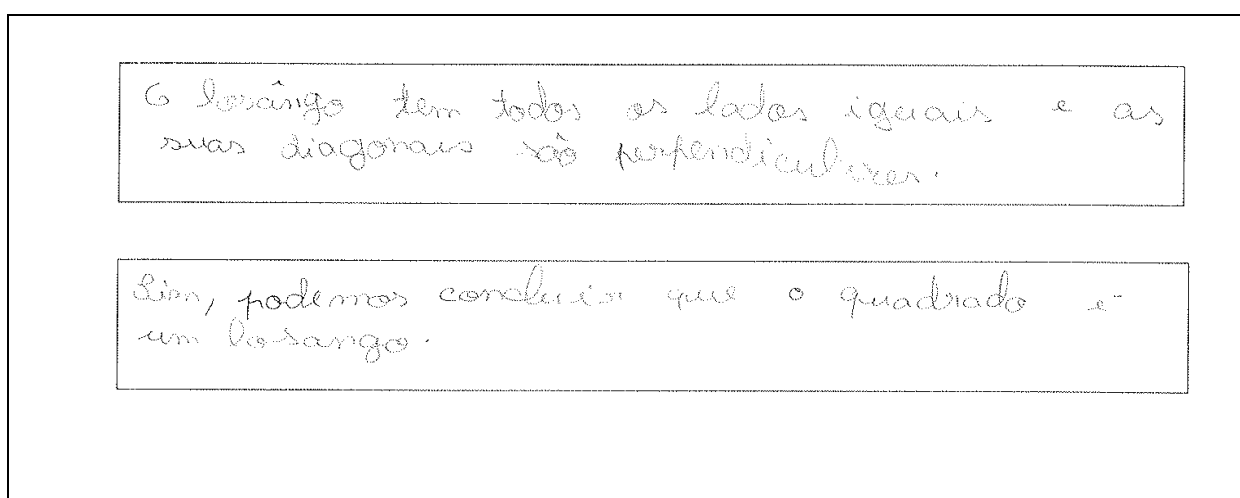 O losângo tem todos os lados iguais e as
suas diagonais são perpendiculares.
Sim, podemos concluir que o quadrado é
um losango.